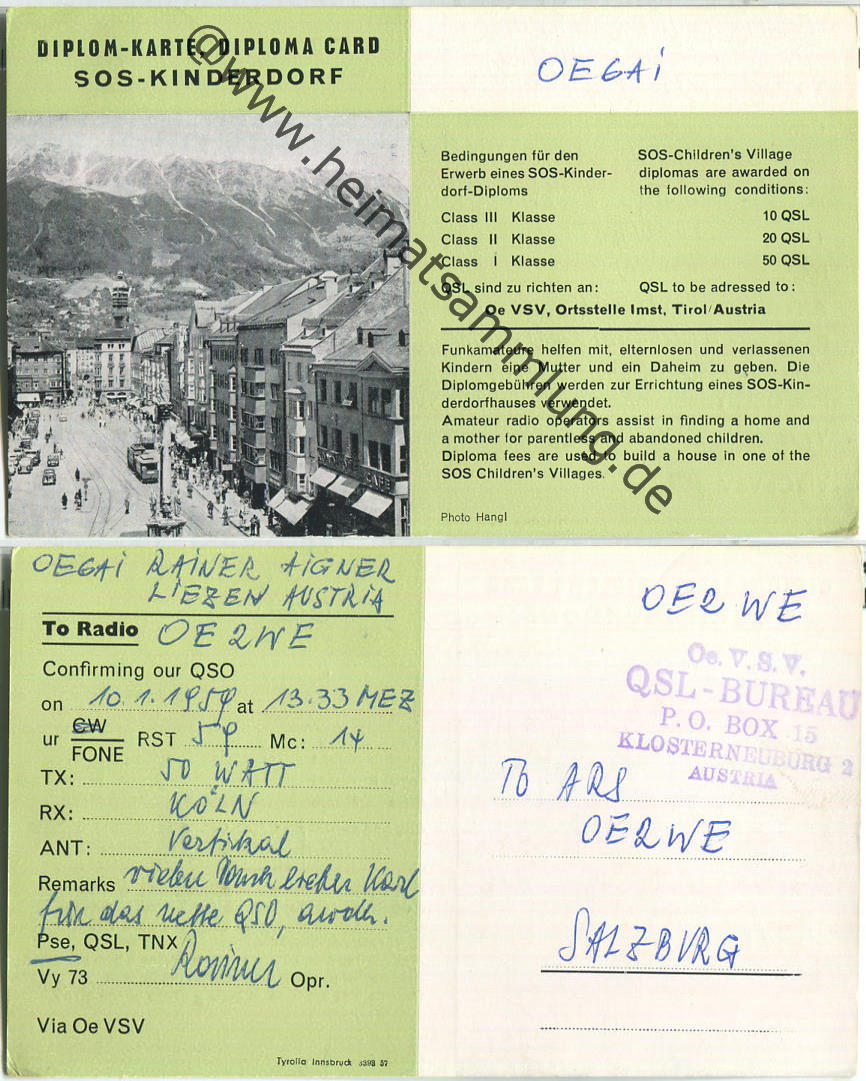 DIPLOM-KARTE, DIPLOMA CARD
SOS-KINDERDORF
OE6AI
@www.heimatsammlung.de
Bedingungen für den
Erwerb eines SOS-Kinder-
dorf-Diploms
SOS-Children's Village
diplomas are awarded on
the following conditions:
Class III Klasse 10 QSL
Class II Klasse 20 QSL
Class I Klasse 50 QSL
QSL sind zu richten an: QSL to be adressed to:
Oe VSV, Ortsstelle Imst, Tirol/Austria
Funkamateure helfen mit, elternlosen und verlassenen
Kindern eine Mutter und ein Daheim zu geben. Die
Diplomgebühren werden zur Errichtung eines SOS-Kin-
derdorfhauses verwendet.
Amateur radio operators assist in finding a home and
a mother for parentless and abandoned children.
Diploma fees are used to build a house in one of the
SOS Children's Villages.
Photo Hangl
CAFE
OE6AI RAINER AIGNER
LIEZEN AUSTRIA
To Radio OE2WE
Confirming our QSO
on 10.1.1959 at 13.33 MEZ
ur CW
FONE RST 59 Mc: 14
TX: 50 WATT
RX: KÖLN
ANT: Vertikal
Remarks vielen Dank lieber Karl
für das nette QSO, awdh.
Pse, QSL, TNX
Vy 73 Rainer Opr.
Via Oe VSV
Tyrolia Innsbruck 3393 57
OE2WE
Oe. V. S. V.
QSL-BUREAU
P. O. BOX 15
KLOSTERNEUBURG 2
AUSTRIA
To ARS
OE2WE
SALZBURG